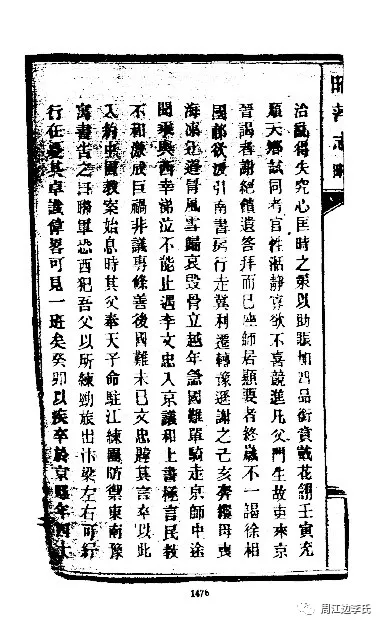 志略
治亂得失究心匡時之策以助賑加四品銜賞戴花翎壬寅充
順天鄉試同考官性湉靜寡欲不喜競進凡父門生故吏來京
晉謁者謝絕饋遺答拜而已座師居顯要者終歲不一謁徐相
國郙欲援引南書房行走冀利遷轉豫遜謝之己亥奔繼母喪
海凍道冒風雪歸哀毀骨立越年國難單騎走京師中途
聞乘輿西幸涕泣不能止遇李文忠入京議和上書極言民教
不和激成巨禍非議專條善後國難未已文忠韙其言卒以此
入約中國教案始息時其父奉天子命駐江練團防禦東南豫
寓書告之曰聯軍恐西犯吾父以所練勁旅出汴梁左右可
行在其卓識偉畧可見一班矣癸卯以疾卒於京年四十
1476
周江边李氏